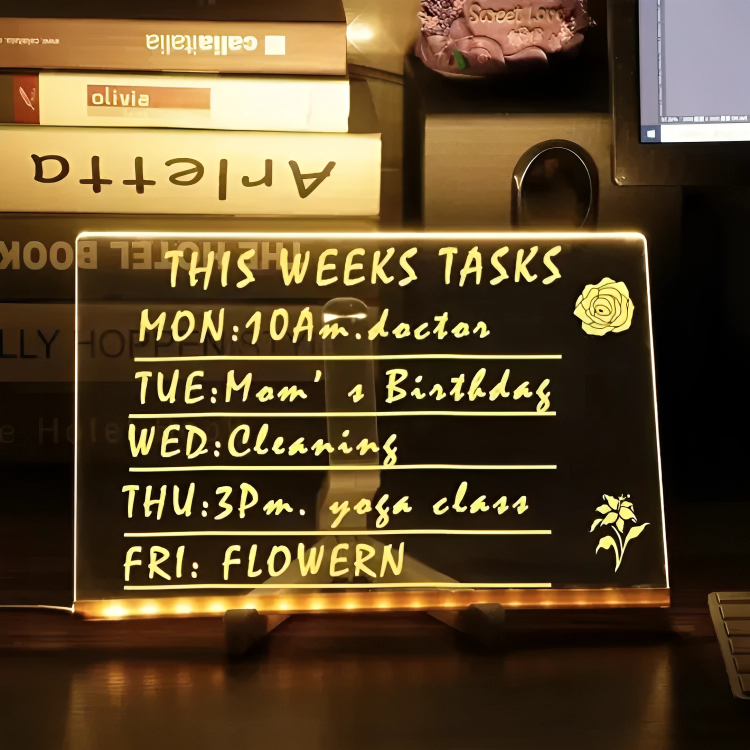 calliaitalia
olivia
Arletta
THE HOTEL BOOK
LLY HOPPEN STY
Sweet Love
THIS WEEKS TASKS
MON:10Am.doctor
TUE:Mom's Birthday
WED:Cleaning
THU:3Pm. yoga class
FRI: FLOWERN